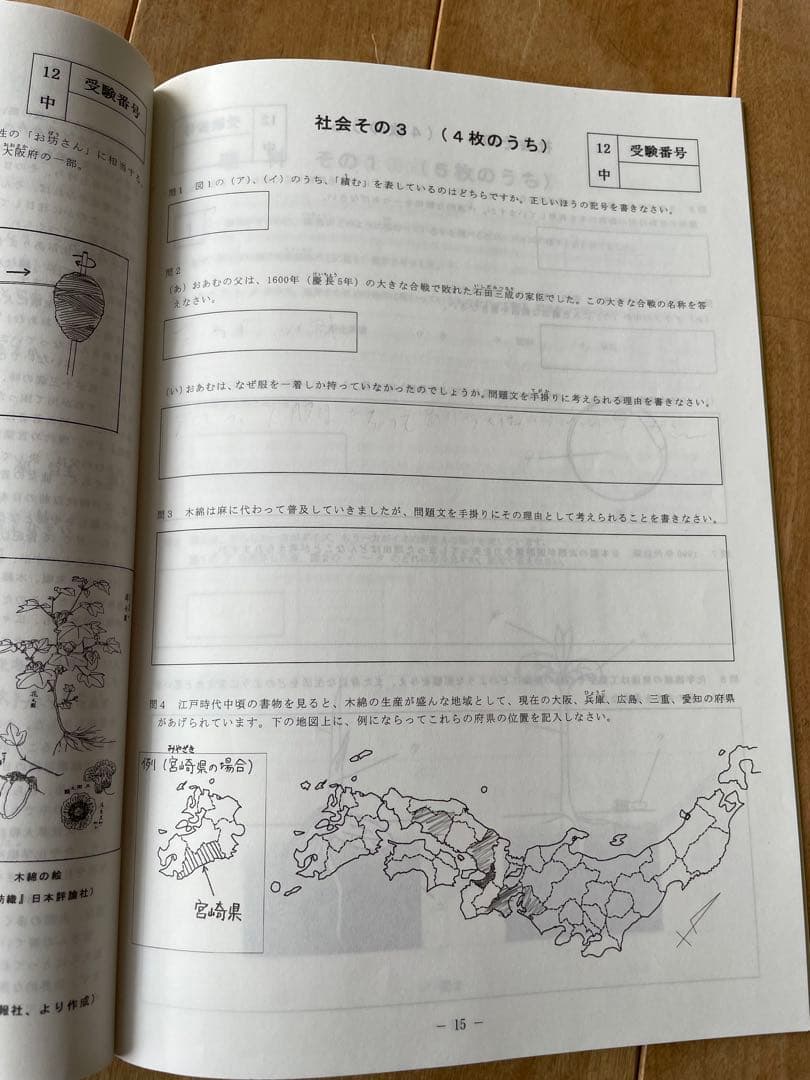 12
中
受験番号
性の「お坊さん」に相当する。
大阪府の一部。
木綿の絵
紡織』日本評論社)
報社、より作成)
社会その3 (4枚のうち)
12
中
受験番号
問1 図1の(ア)、(イ)のうち、「績む」を表しているのはどちらですか。正しいほうの記号を書きなさい。
問2
(あ)おあむの父は、1600年(慶長5年)の大きな合戦で敗れた石田三成の家臣でした。この大きな合戦の名称を答
えなさい。
(い)おあむは、なぜ服を一着しか持っていなかったのでしょうか。問題文を手掛りに考えられる理由を書きなさい。
問3 木綿は麻に代わって普及していきましたが、問題文を手掛りにその理由として考えられることを書きなさい。
問4 江戸時代中頃の書物を見ると、木綿の生産が盛んな地域として、現在の大阪、兵庫、広島、三重、愛知の府県
があげられています。下の地図上に、例にならってこれらの府県の位置を記入しなさい。
例(宮崎県の場合)
宮崎県
- 15 -